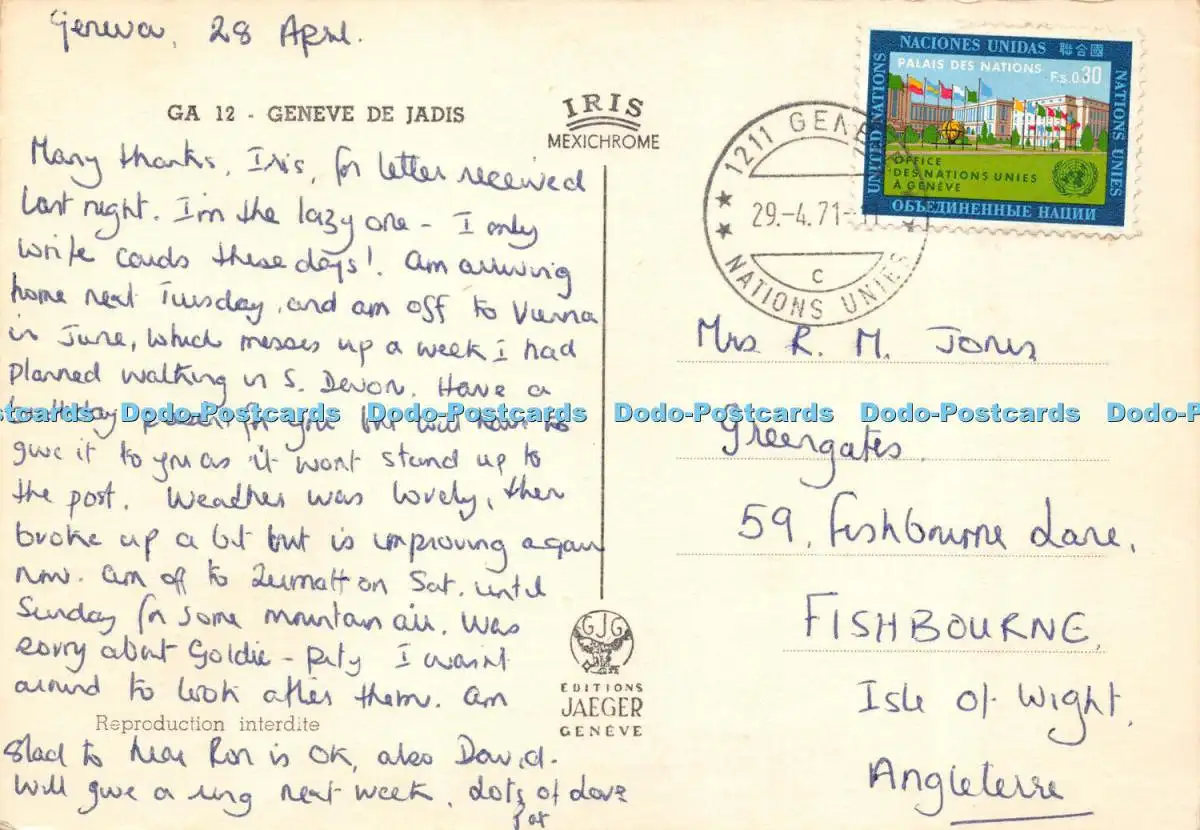 Geneva, 28 April.
GA 12 - GENEVE DE JADIS
IRIS
MEXICHROME
Many thanks, Iris, for letter received
last night. I'm the lazy one - I only
write cards these days! Am arriving
home next Tuesday, and am off to Vienna
in June, which messes up a week I had
planned walking in S. Devon. Have a
birthday present for you but will have to
give it to you as it wont stand up to
the post. Weather was lovely, then
broke up a bit but is improving again
now. Am off to Zermatt on Sat. until
Sunday for some mountain air. Was
sorry about Goldie - pity I wasn't
around to look after them. Am
Reproduction interdite
glad to hear Ron is OK, also David.
Will give a ring next week. Lots of love
Pat
GJG
EDITIONS
JAEGER
GENÈVE
NACIONES UNIDAS 聯合國
PALAIS DES NATIONS F.s. 0.30
UNITED NATIONS
NATIONS UNIES
OFFICE
DES NATIONS UNIES
À GENÈVE
ОБЪЕДИНЕННЫЕ НАЦИИ
1211 GENÈ
29.-4.71-11
C
NATIONS UNIES
Mrs R. M. Jones
Greengates,
59, Fishbourne Lane,
FISHBOURNE,
Isle of Wight,
Angleterre
ostcards Dodo-Postcards Dodo-Postcards Dodo-Postcards Dodo-Postcards Dodo-Po